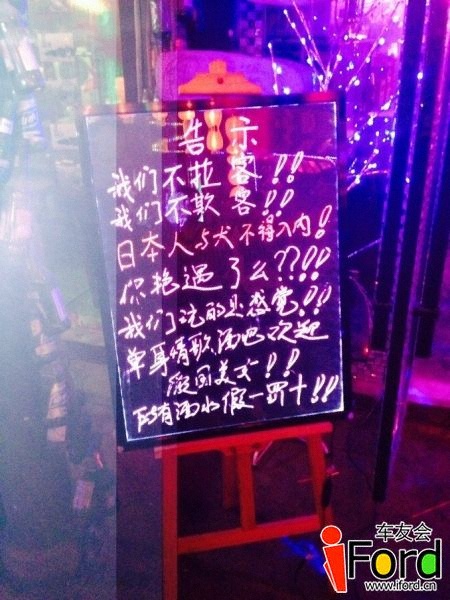 告示
我们不拉客!!
我们不欺客!!
日本人与犬不得入内!
你艳遇了么??!!
我们玩的是感觉!!
单耳情歌酒吧欢迎
微国美女!!
所有酒水假一罚十!!
车友会
iFord
www.iford.cn